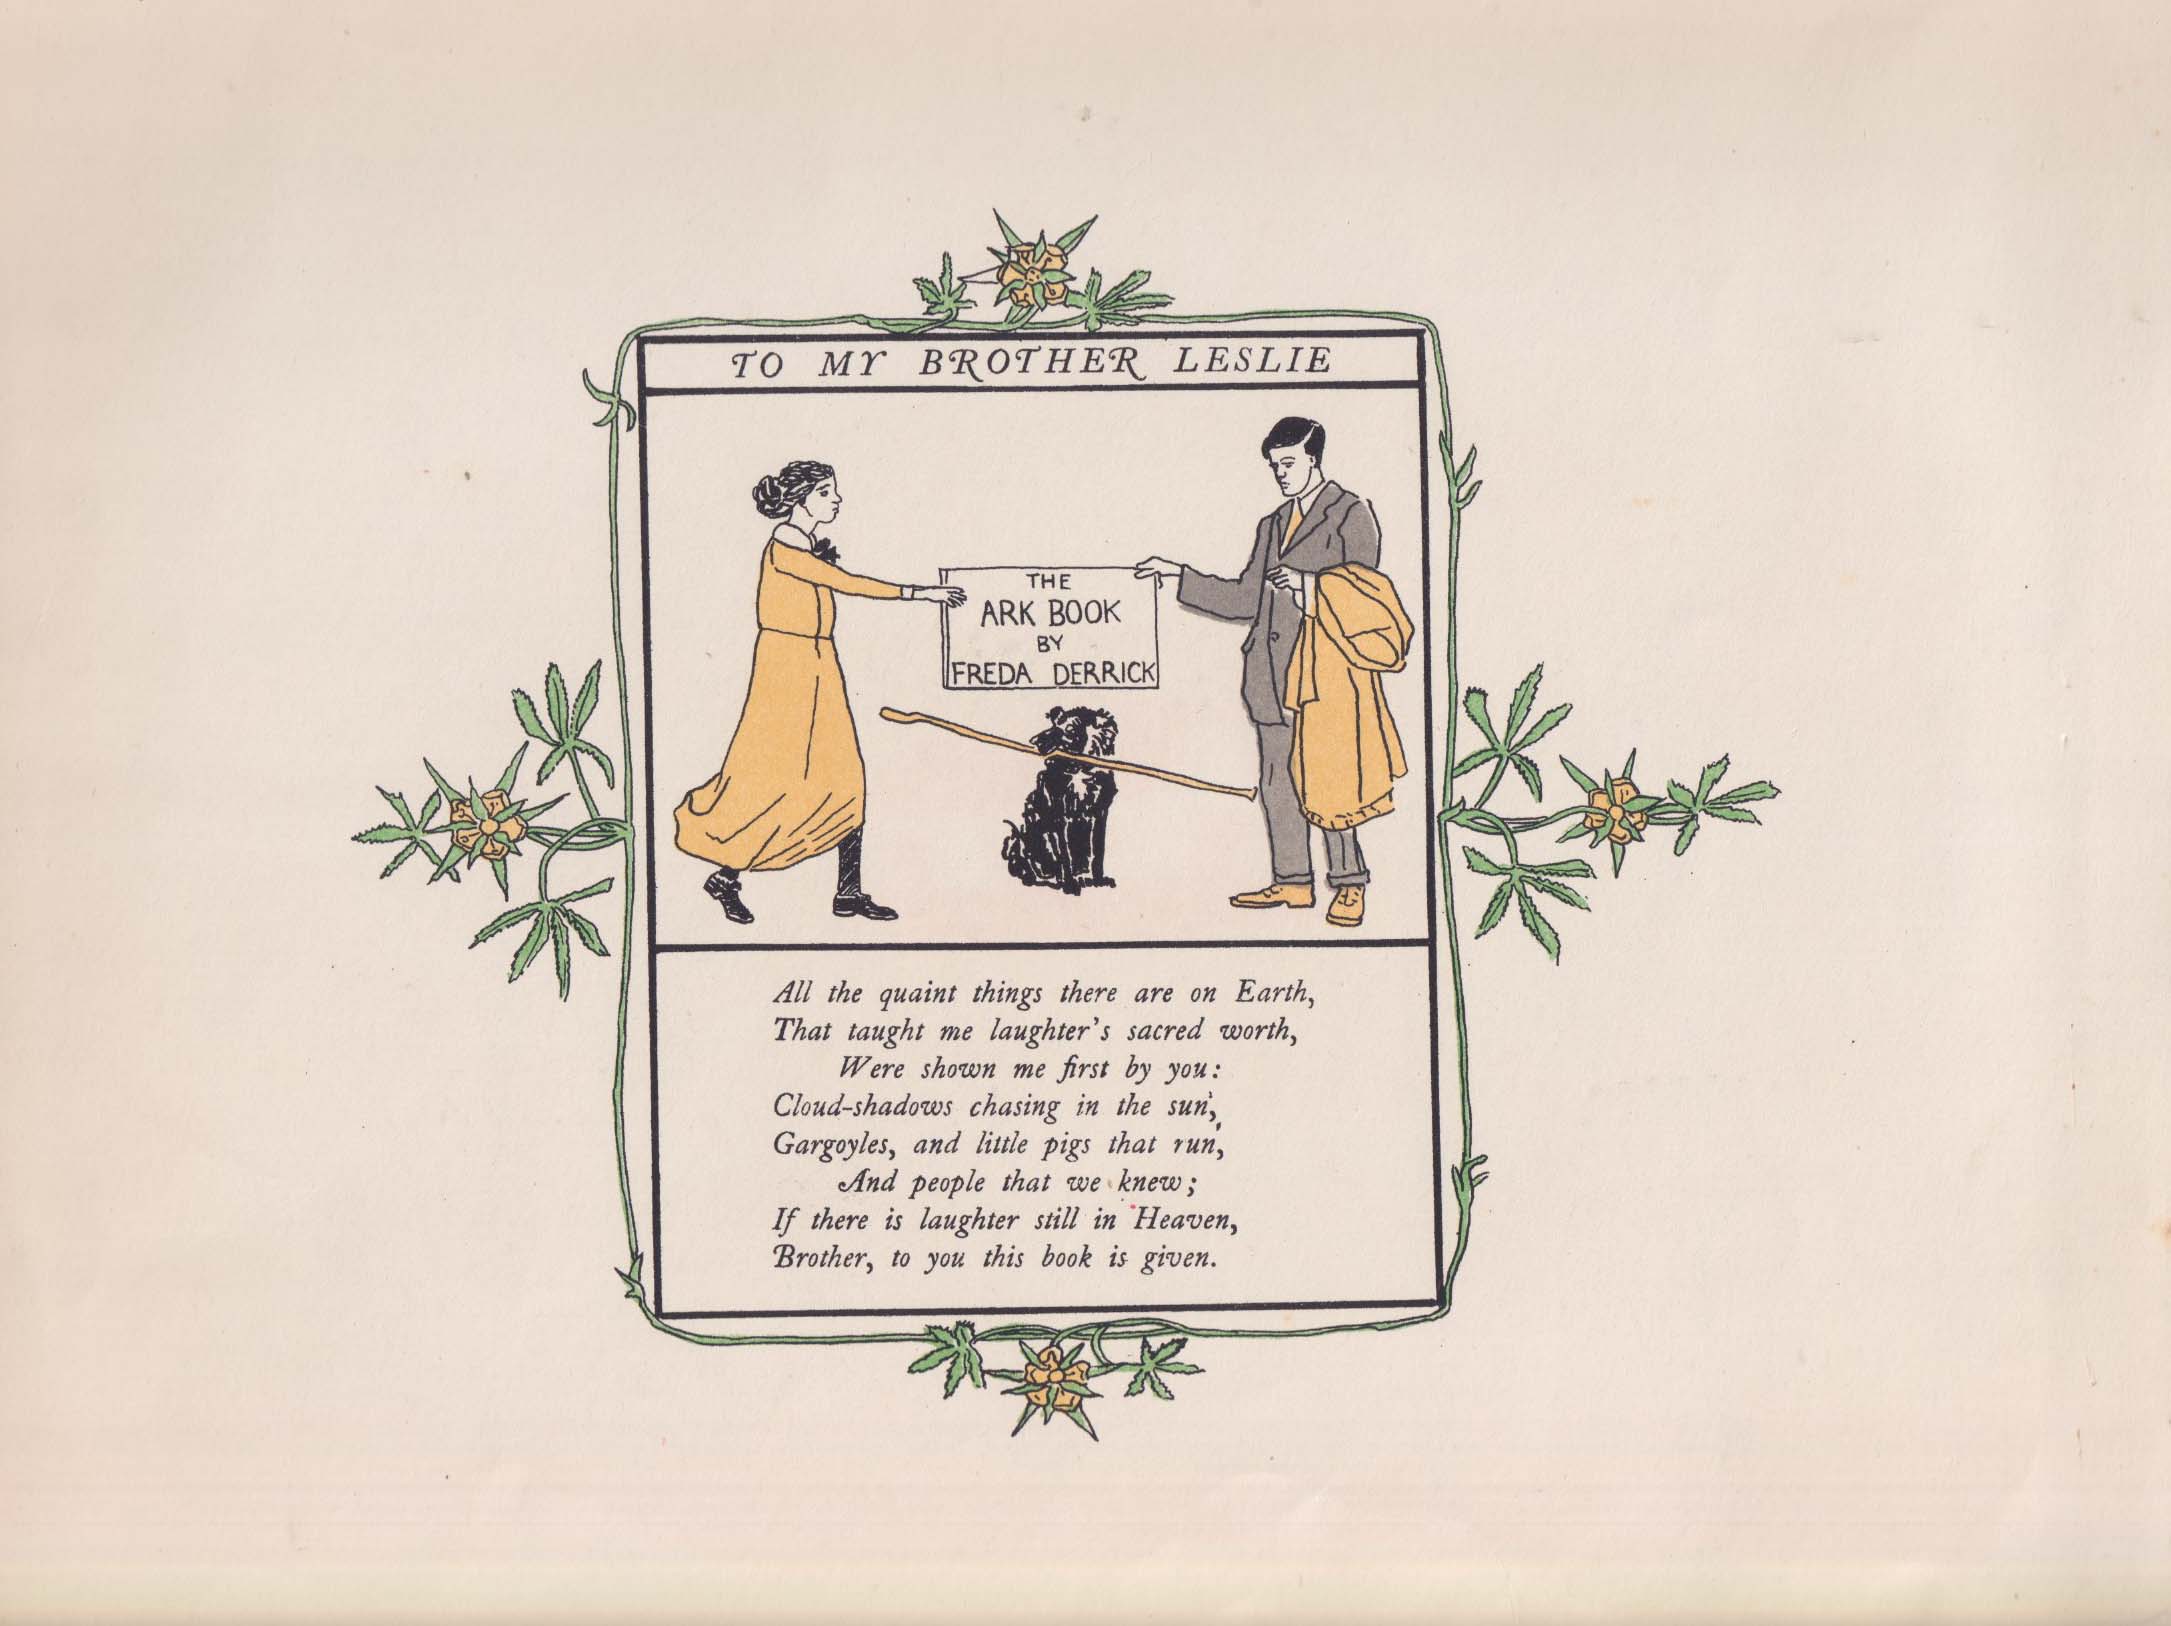 TO MY BROTHER LESLIE
THE
ARK BOOK
BY
FREDA DERRICK
All the quaint things there are on Earth,
That taught me laughter's sacred worth,
Were shown me first by you:
Cloud-shadows chasing in the sun,
Gargoyles, and little pigs that run,
And people that we knew;
If there is laughter still in Heaven,
Brother, to you this book is given.